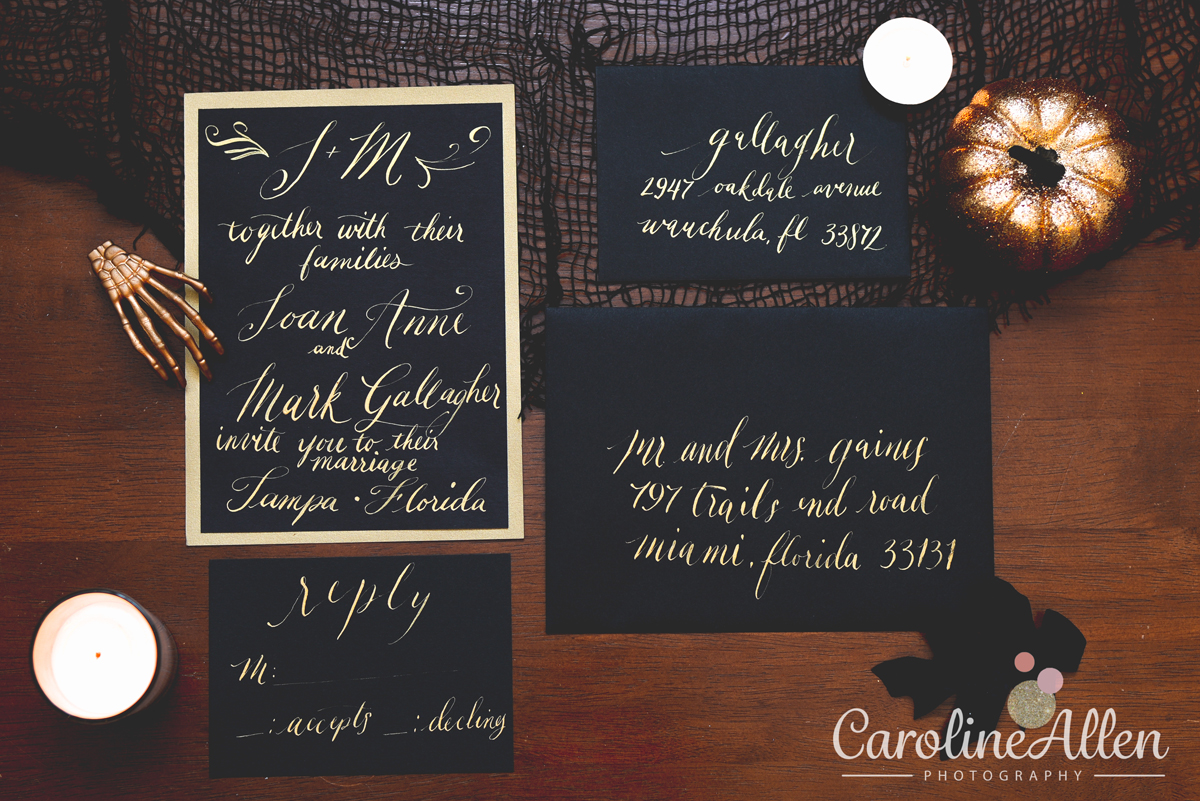 J + M
together with their
families
Joan Anne
and
Mark Gallagher
invite you to their
marriage
Tampa · Florida
gallagher
2947 oakdale avenue
wauchula, fl 33872
mr and mrs. gaines
797 trails end road
miami, florida 33131
reply
M:
_: accepts _: declines
CarolineAllen
PHOTOGRAPHY